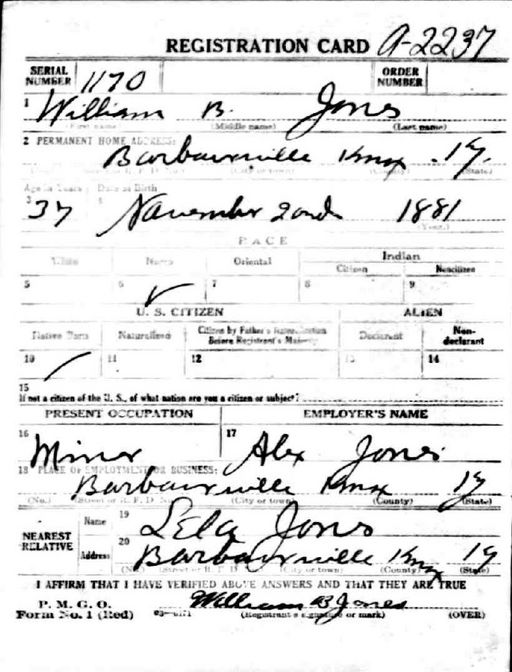 REGISTRATION CARD A-2237
SERIAL NUMBER 1170 ORDER NUMBER
1 William B. Jones
(First name) (Middle name) (Last name)
2 PERMANENT HOME ADDRESS:
Barbourville Knox Ky.
(No.) (Street or R. F. D. No.) (City or town) (County) (State)
Age in Years Date of Birth
3 37 4 November 22nd 1881
(Year.)
RACE
White Negro Oriental Indian
Citizen Noncitizen
5 6 ✓ 7 8 9
U. S. CITIZEN ALIEN
Native Born Naturalized Citizen by Father's Naturalization Before Registrant's Majority Declarant Non-declarant
10 ✓ 11 12 13 14
15
If not a citizen of the U. S., of what nation are you a citizen or subject?
PRESENT OCCUPATION EMPLOYER'S NAME
16 Miner 17 Alex Jones
18 PLACE OF EMPLOYMENT OR BUSINESS:
Barbourville Knox Ky
(No.) (Street or R. F. D. No.) (City or town) (County) (State)
NEAREST RELATIVE Name 19 Lela Jones
Address 20 Barbourville Knox Ky
(No.) (Street or R. F. D. No.) (City or town) (County) (State)
I AFFIRM THAT I HAVE VERIFIED ABOVE ANSWERS AND THAT THEY ARE TRUE
P. M. G. O.
Form No. 1 (Red) William B Jones
(Registrant's signature or mark) (OVER)